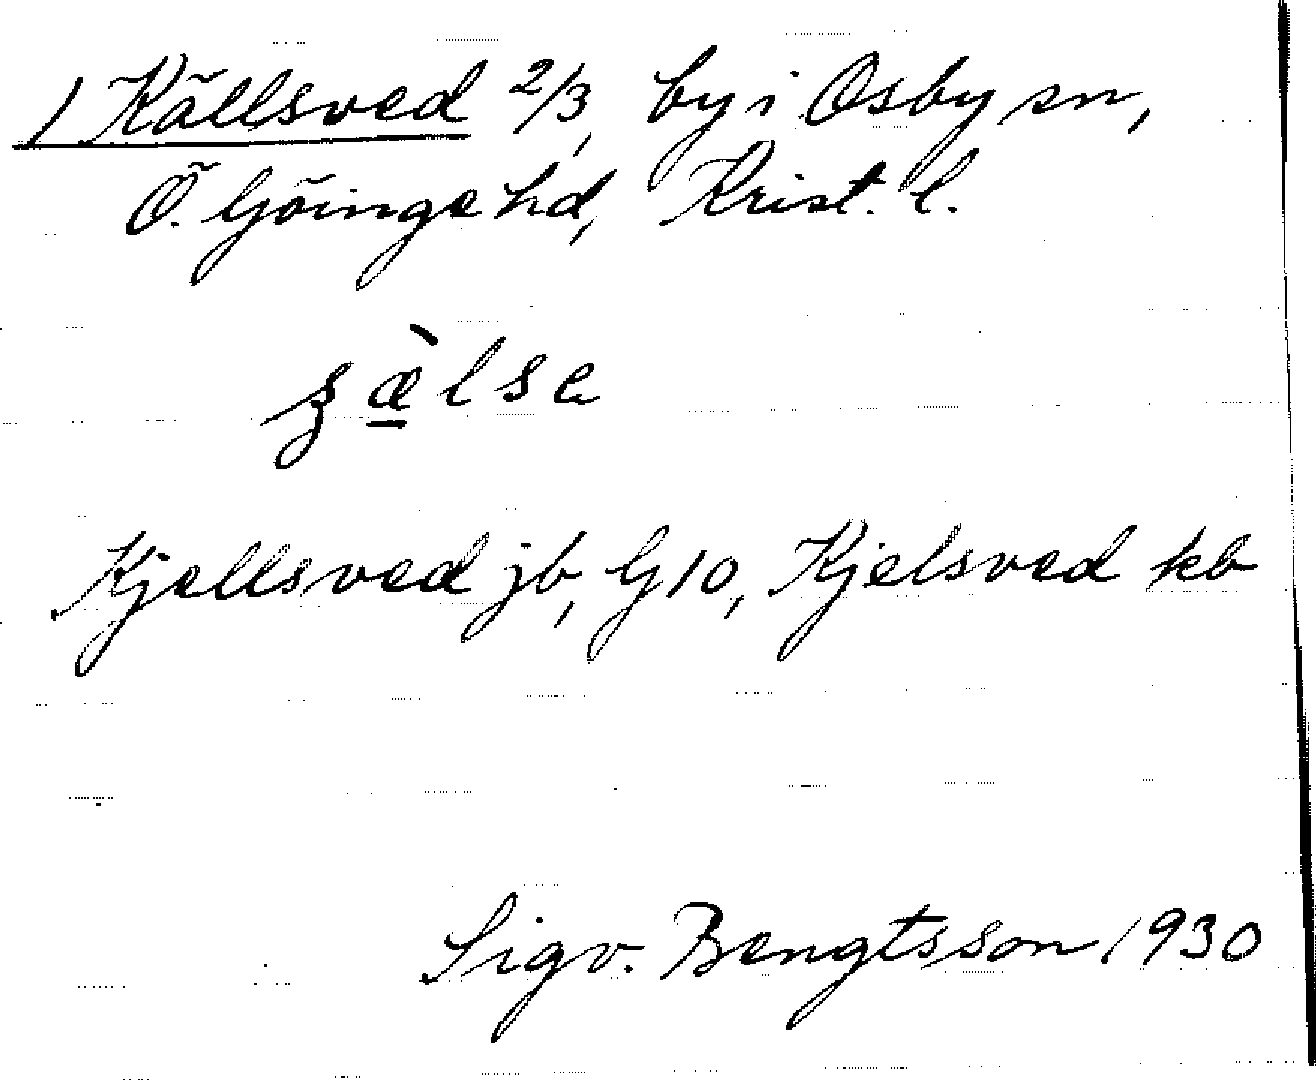 1 Källsved 2/3, by i Osby sn,
Ö. Göinge hd, Krist. l.
Kjellsved jb, G10, Kjelsved kb
Sigv. Bengtsson 1930